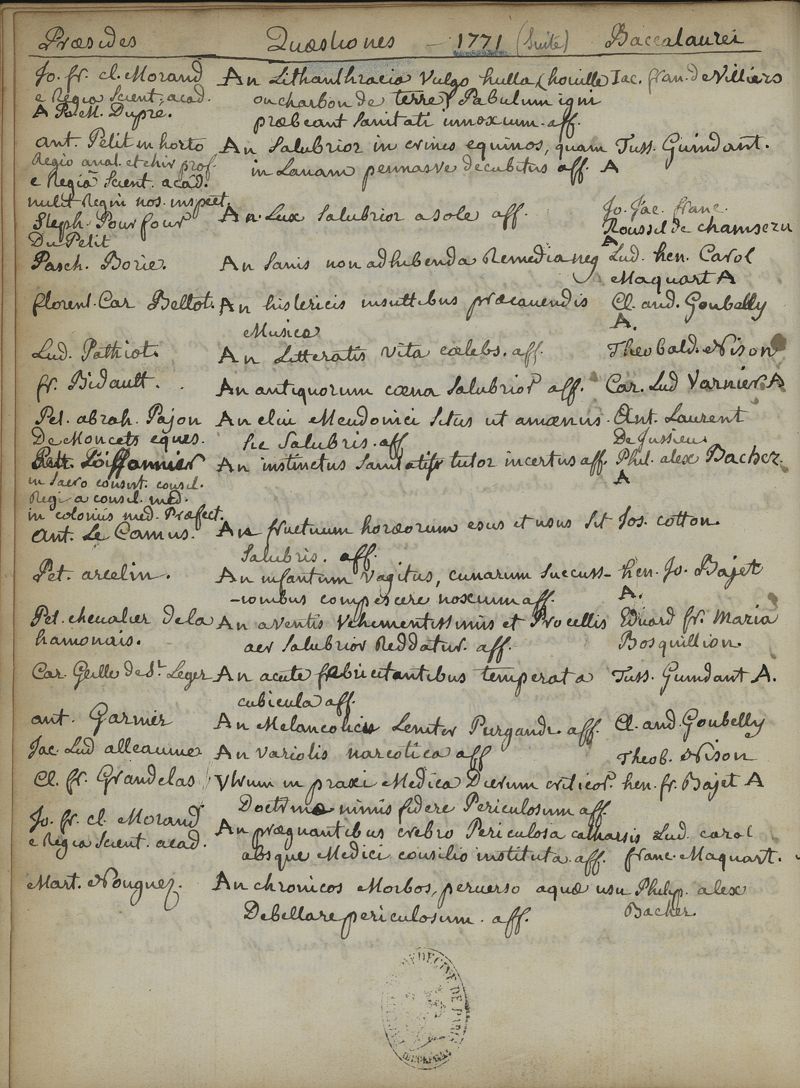 Præsides Quæstiones – 1771 (Suite) Baccalaurei
Jo. fr. cl. Morand An Lithanthracia Vulgo hulla (houille Jac. fran. de Villiers
e Regia Scient. acad. ou charbon de terre) Pabulum igni
A Pa M. Dupré. præbeant Sanitati innoxium. aff.
ant. Petit in horto An Salubrior in crines equinos, quam Tuss. Guindant.
Regio anat. et chir prof. in Lanam pennasve decubitus aff. A
e Regiâ Scient. acad.
milit Regni nos. inspect. An Lux Salubrior a sole aff. Jo. Jac. franc.
Steph. Pourfour Roussel de chamseru
Du Petit A
Pasch. Borie. An Sanis non adhibenda Remedia neg Lud. hen. Carol
Maquart A
florent. Car Bellot. An histericis insultibus præcavendis Cl. and. Goubelly
Musica A.
Lud. Pathiot. An Litteratis vita cælebs. aff. Theobald. Nison
fr. Bidault. An antiquorum cæna Salubrior aff. Car. Lud Varnier A
Pet. abrah. Pajon An clivi Meudonici Situs ut amænus. Ant. Laurent
De Moncets eques. Sic Salubris. aff De Jussieu.
Poissonnier An instinctus Sanitatis tutor incertus aff. Phil. alex Bacher.
in Sacro consist. consil. A
Regi a consil. med.
in coloniis med. Præfect.
ant. Le Camus. An fructuum horæorum esus et usus Sit Jos. cotton.
Salubris. aff.
Pet. arcelin. An infantum Vagitus, cunarum Succuss- hen. Jo. Bajet
-ionibus compescere noxium aff. A.
Pet. chevalier de la An a ventis Vehementissimis et Procellis Eduard fr. Maria
hamonais. aer Salubrior Reddatur. aff. Bosquillion.
Car. Geille de St. Leger An acute febricitantibus temperata Tuss. Guindant A.
cubicula aff.
ant. Garnier An Melancolicis Leniter Purgandi. aff. Cl. and. Goubelly
Jac. Lud alleaume An Variolis narcotica aff Theob. Nison
Cl. fr. Grandelas Utrum in praxi Medica Dierum criticor. hen. fr. Bajet A
Doctrinæ nimis fidere Periculosum aff.
Jo. fr. cl. Morand An prægnantibus crebro Periculosa catharsis Lud. carol
e Regia Scient. acad. absque Medici consilio instituta. aff. franc. Maquart.
Mart. Nouguez. An chronicos Morbos, perverso aquæ usu Philip. alex
Debellare periculosum. aff. Bacher.
MEDECINE DE PARIS